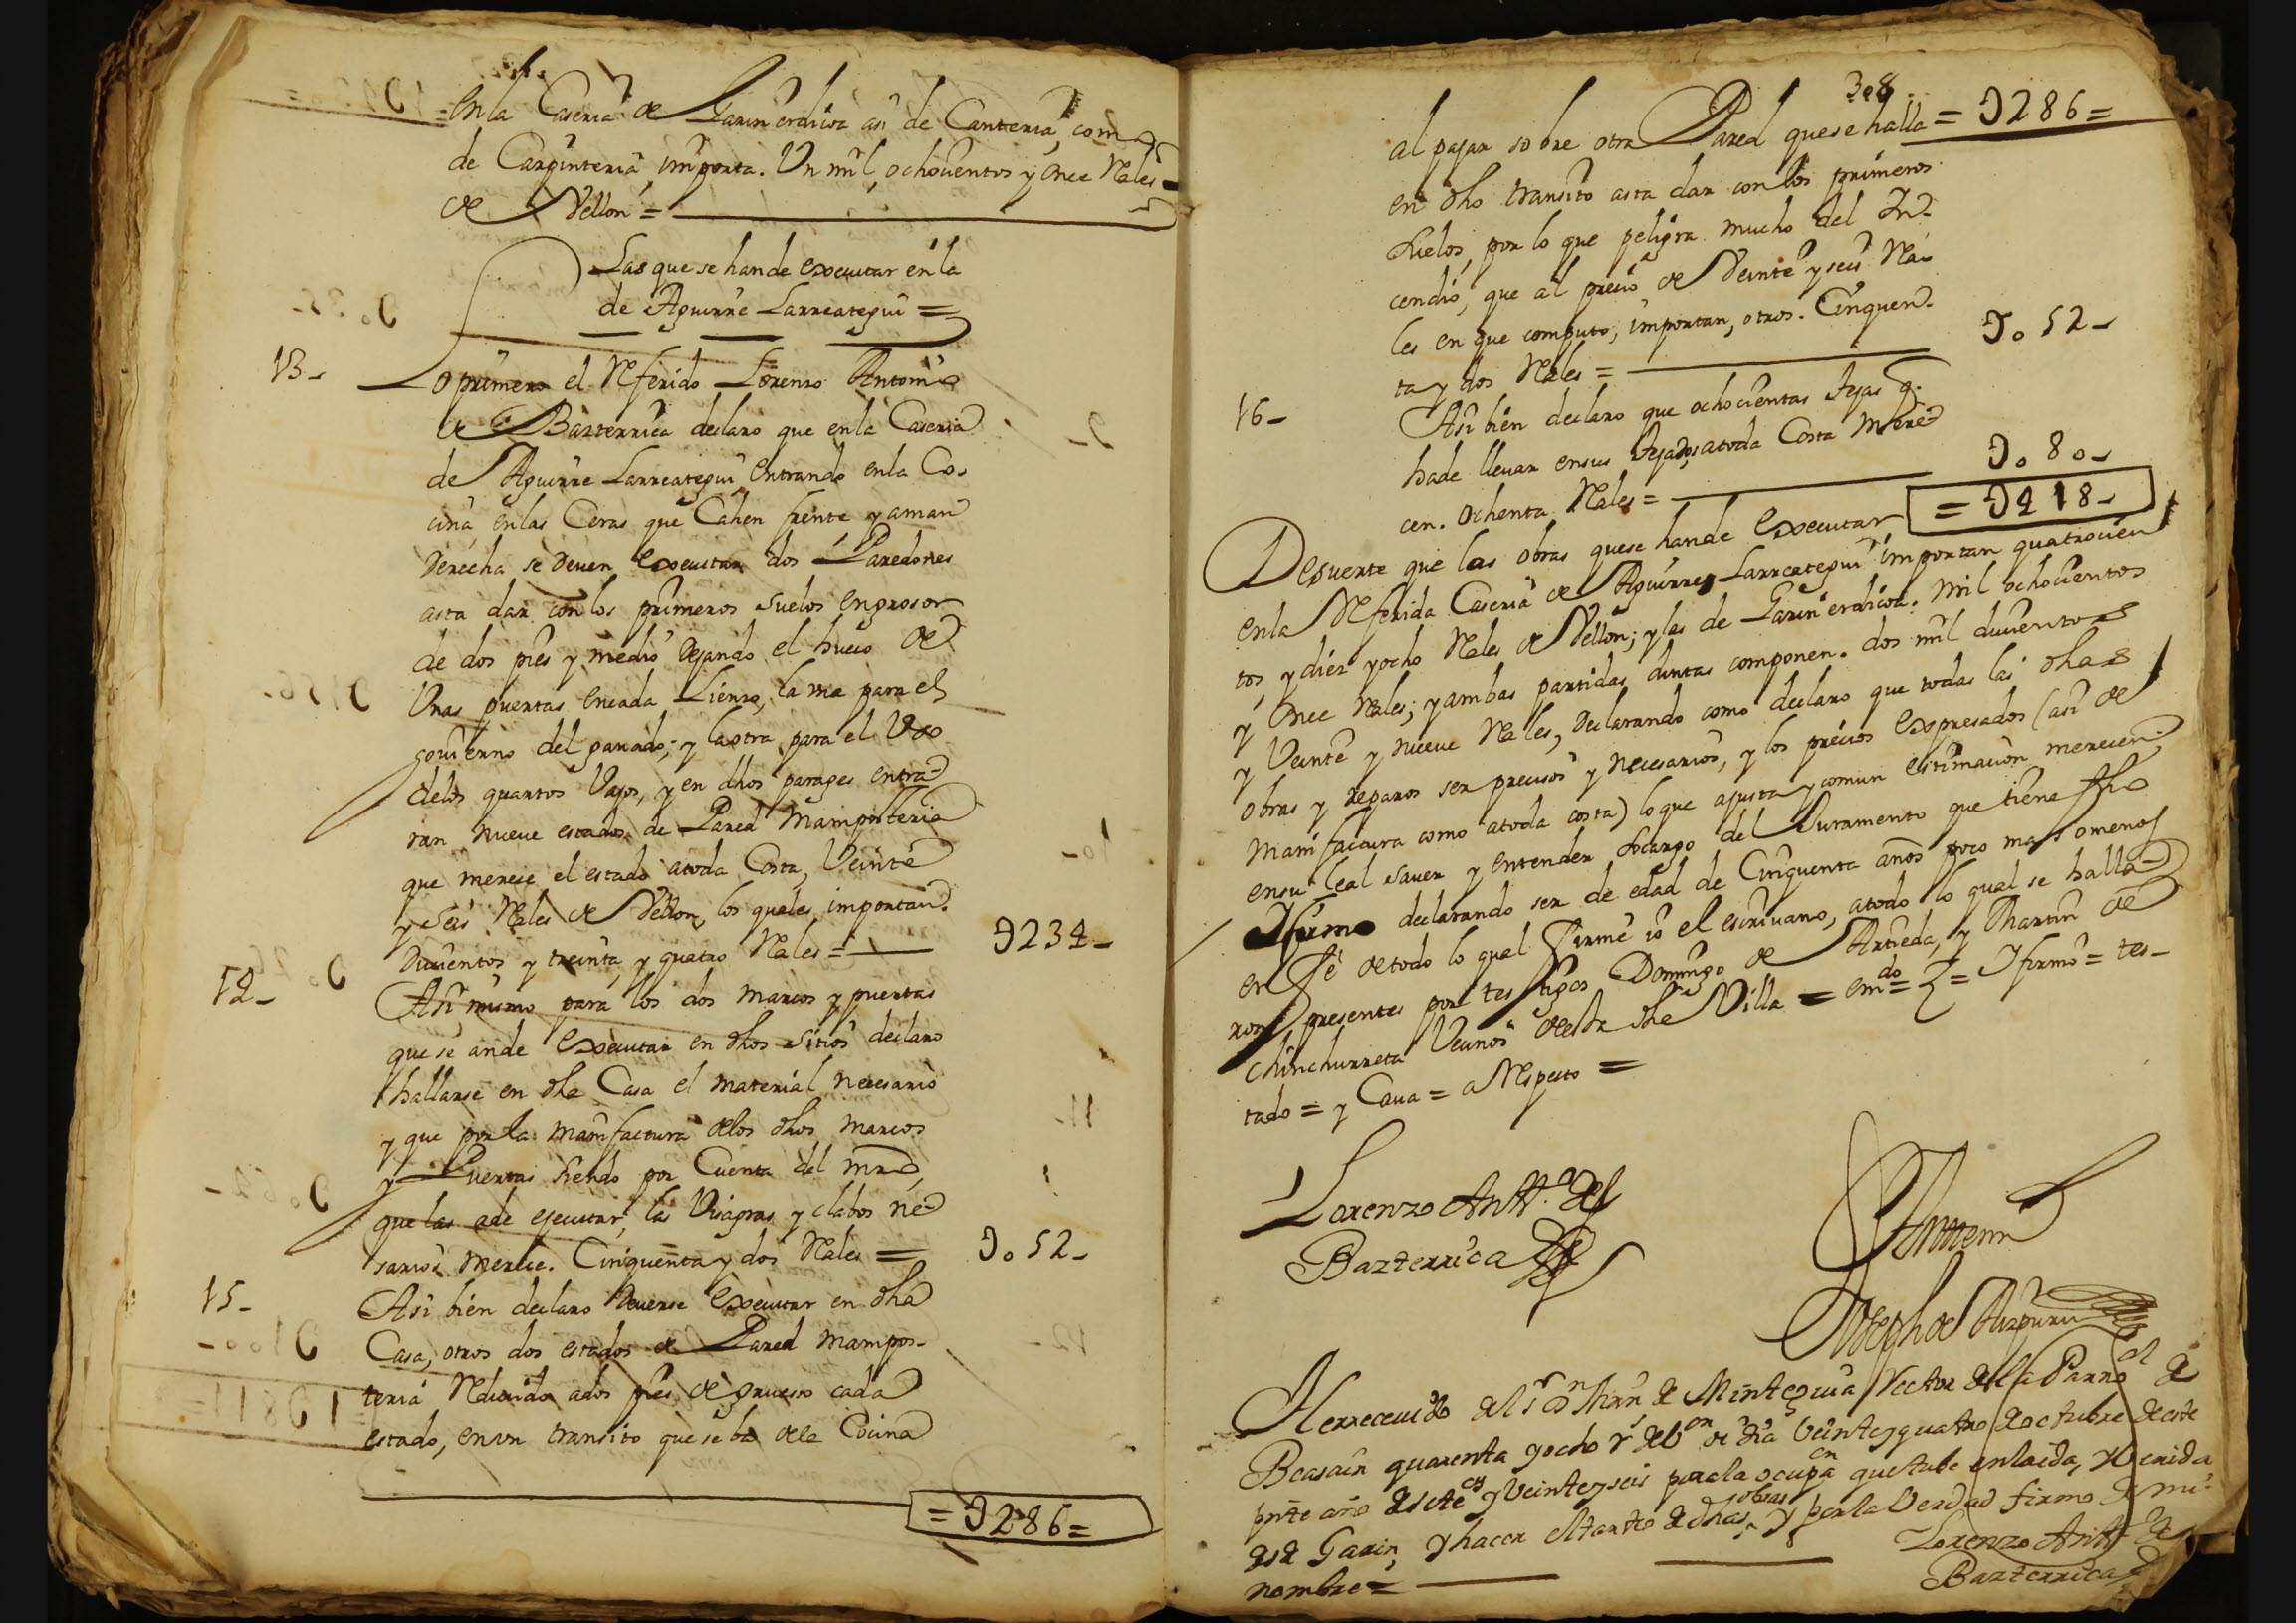 en la Caseria de Garin erdicoa asi de Canteria, como
de Carpinteria, importa. Un mil, ochocientos y once Rales
de Vellon =
Las que se han de executar en la
de Aguirre Larreategui =
13- Lo primero el Referido Lorenzo Antonio
de Bazterrica declaro que en la Caseria
de Aguirre Larreategui entrando en la Co-
cina, en las Ceras que Cahen frente, y a man
derecha se deven executar dos Paredones
asta dar con los primeros suelos en grosor
de dos pies y medio dejando el hueco de
Unas puertas en cada Lienzo, la una para el
govierno del ganado; y la otra para el Uso
de los quartos Vajos, y en dhos parages entra-
ran nueve estados de Pared Mamposteria
que merece el estado a toda Costa, Veinte
y Seis Rales de Vellon, los queles importan.
Ducientos y treinta, y quatro Rales = D234-
14- Asi mismo para los dos marcos y puertas
que se an de executar en dhos sitios declaro
hallarse en dha Casa el material necesario
y que por la manifactura de los dhos marcos
y Puertas siendo por Cuenta del mro,
que las a de ejecutar, las Visagras y clabos ne-
sarios merece. Cinquenta y dos Rales = Do52-
15- Asi bien declaro deverse executar en dha
Casa, otros dos estados de Pared mampos-
teria Reducida a dos pies de grueso cada
estado, en un transito que se ba de la Cocina
= D286=
308
al pajar sobre otra Pared que se halla = D286=
en dho transito asta dar con los primeros
suelos, por lo que peligra mucho del In-
cendio, que al precio de Veinte y seis Ra-
les en que computo, importan, otros. Cinquen-
ta y dos Rales = Do52-
16- Asi bien declaro que ochocientas tejas q.
ha de llevar en sus tejados, a toda Costa mere-
cen. Ochenta Rales = Do80-
= D418-
De suerte que las obras que se han de executar
en la Referida Caseria de Aguirre Larreategui importan quatrocien
tos, y diez y ocho Rales de Vellon; y las de Garin erdicoa. mil ochocientos
y Once Rales; y ambas partidas Juntas componen. dos mil ducientos
y Veinte y nueve Rales, declarando como declaro que todas las dhas
obras y reparos ser precisos y necesarios, y los precios expresados (asi de
manifactura como a toda costa) lo que a justa y comun estimacion merecen;
en su leal saver y entender so cargo del Juramento que tiene fho
Y firmo declarando ser de edad de Cinquenta años poco mas o menos
en Fe de todo lo qual firme io el escrivano, a todo lo qual se halla-
ron presentes por testigos Domingo de Artieda, y Martin de
Chinchurreta Vecinos desta dha Villa = emdo = = Y firmo = tes-
tado = y Caua = a Respecto =
Lorenzo Antt.o de
Bazterrica
Ante mi
Joseph de Aizpuru
He rrecevido del sr Dn Mrn de Minteguia Rector de la Parroal de
Beasain quarenta y ocho Rs de Von oi dia Veinte y quatro de octubre de este
pnte año de setecos y Veinte y seis por la ocupaon que tube en la ida, y benida
de Garin, y hacer el tanteo de dhas obras, y por la Verdad firmo de mi
nombre =
Lorenzo Antt.o de
Bazterrica